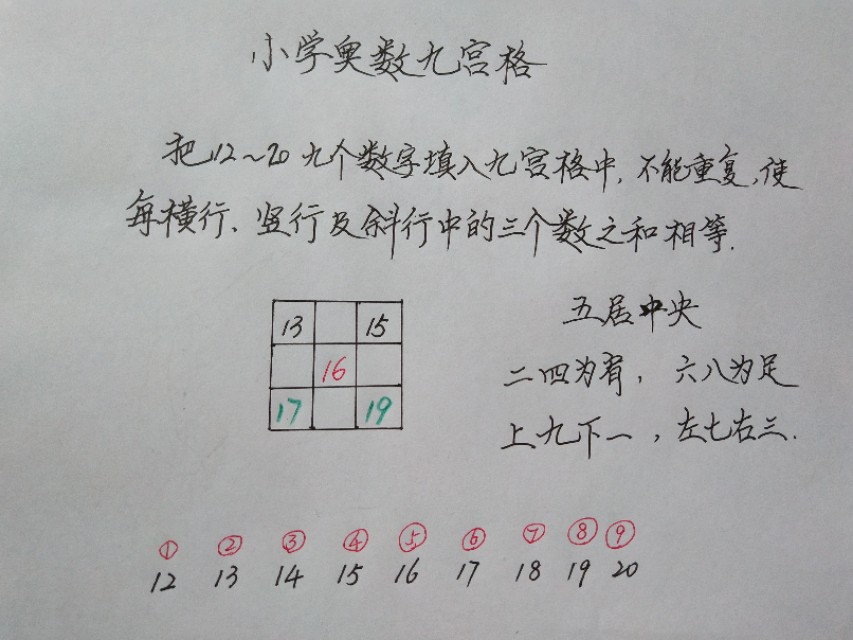 小学奥数九宫格
把12~20九个数字填入九宫格中,不能重复,使
每横行、竖行及斜行中的三个数之和相等.
13 15
16
17 19
五居中央
二四为肩,六八为足
上九下一,左七右三.
① ② ③ ④ ⑤ ⑥ ⑦ ⑧ ⑨
12 13 14 15 16 17 18 19 20